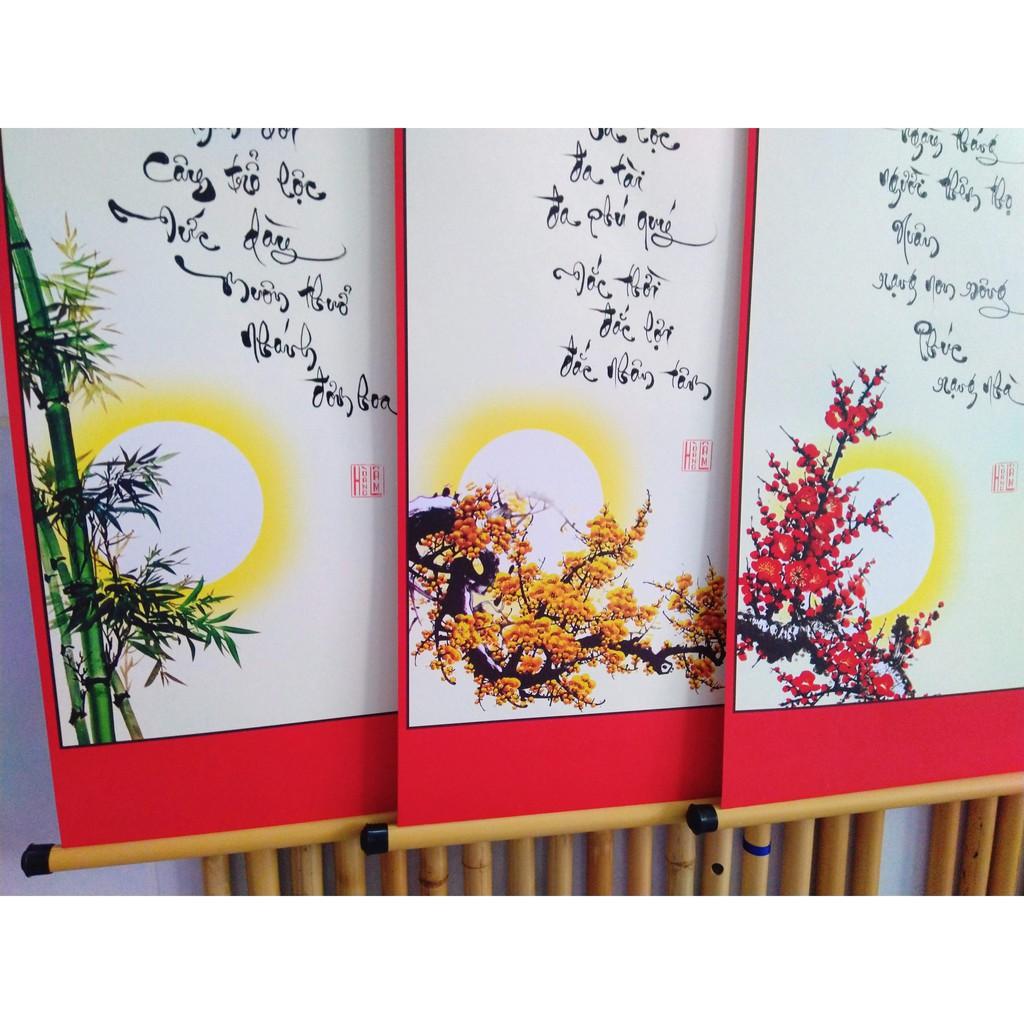 Cây trổ lộc
Đức dày
muôn thuở
Nhánh
đơm hoa
Đa lộc
đa tài
đa phú quý
Đắc thời
đắc lợi
đắc nhân tâm
Ngày tháng
người thêm thọ
Xuân
rạng non sông
Phúc
rạng nhà